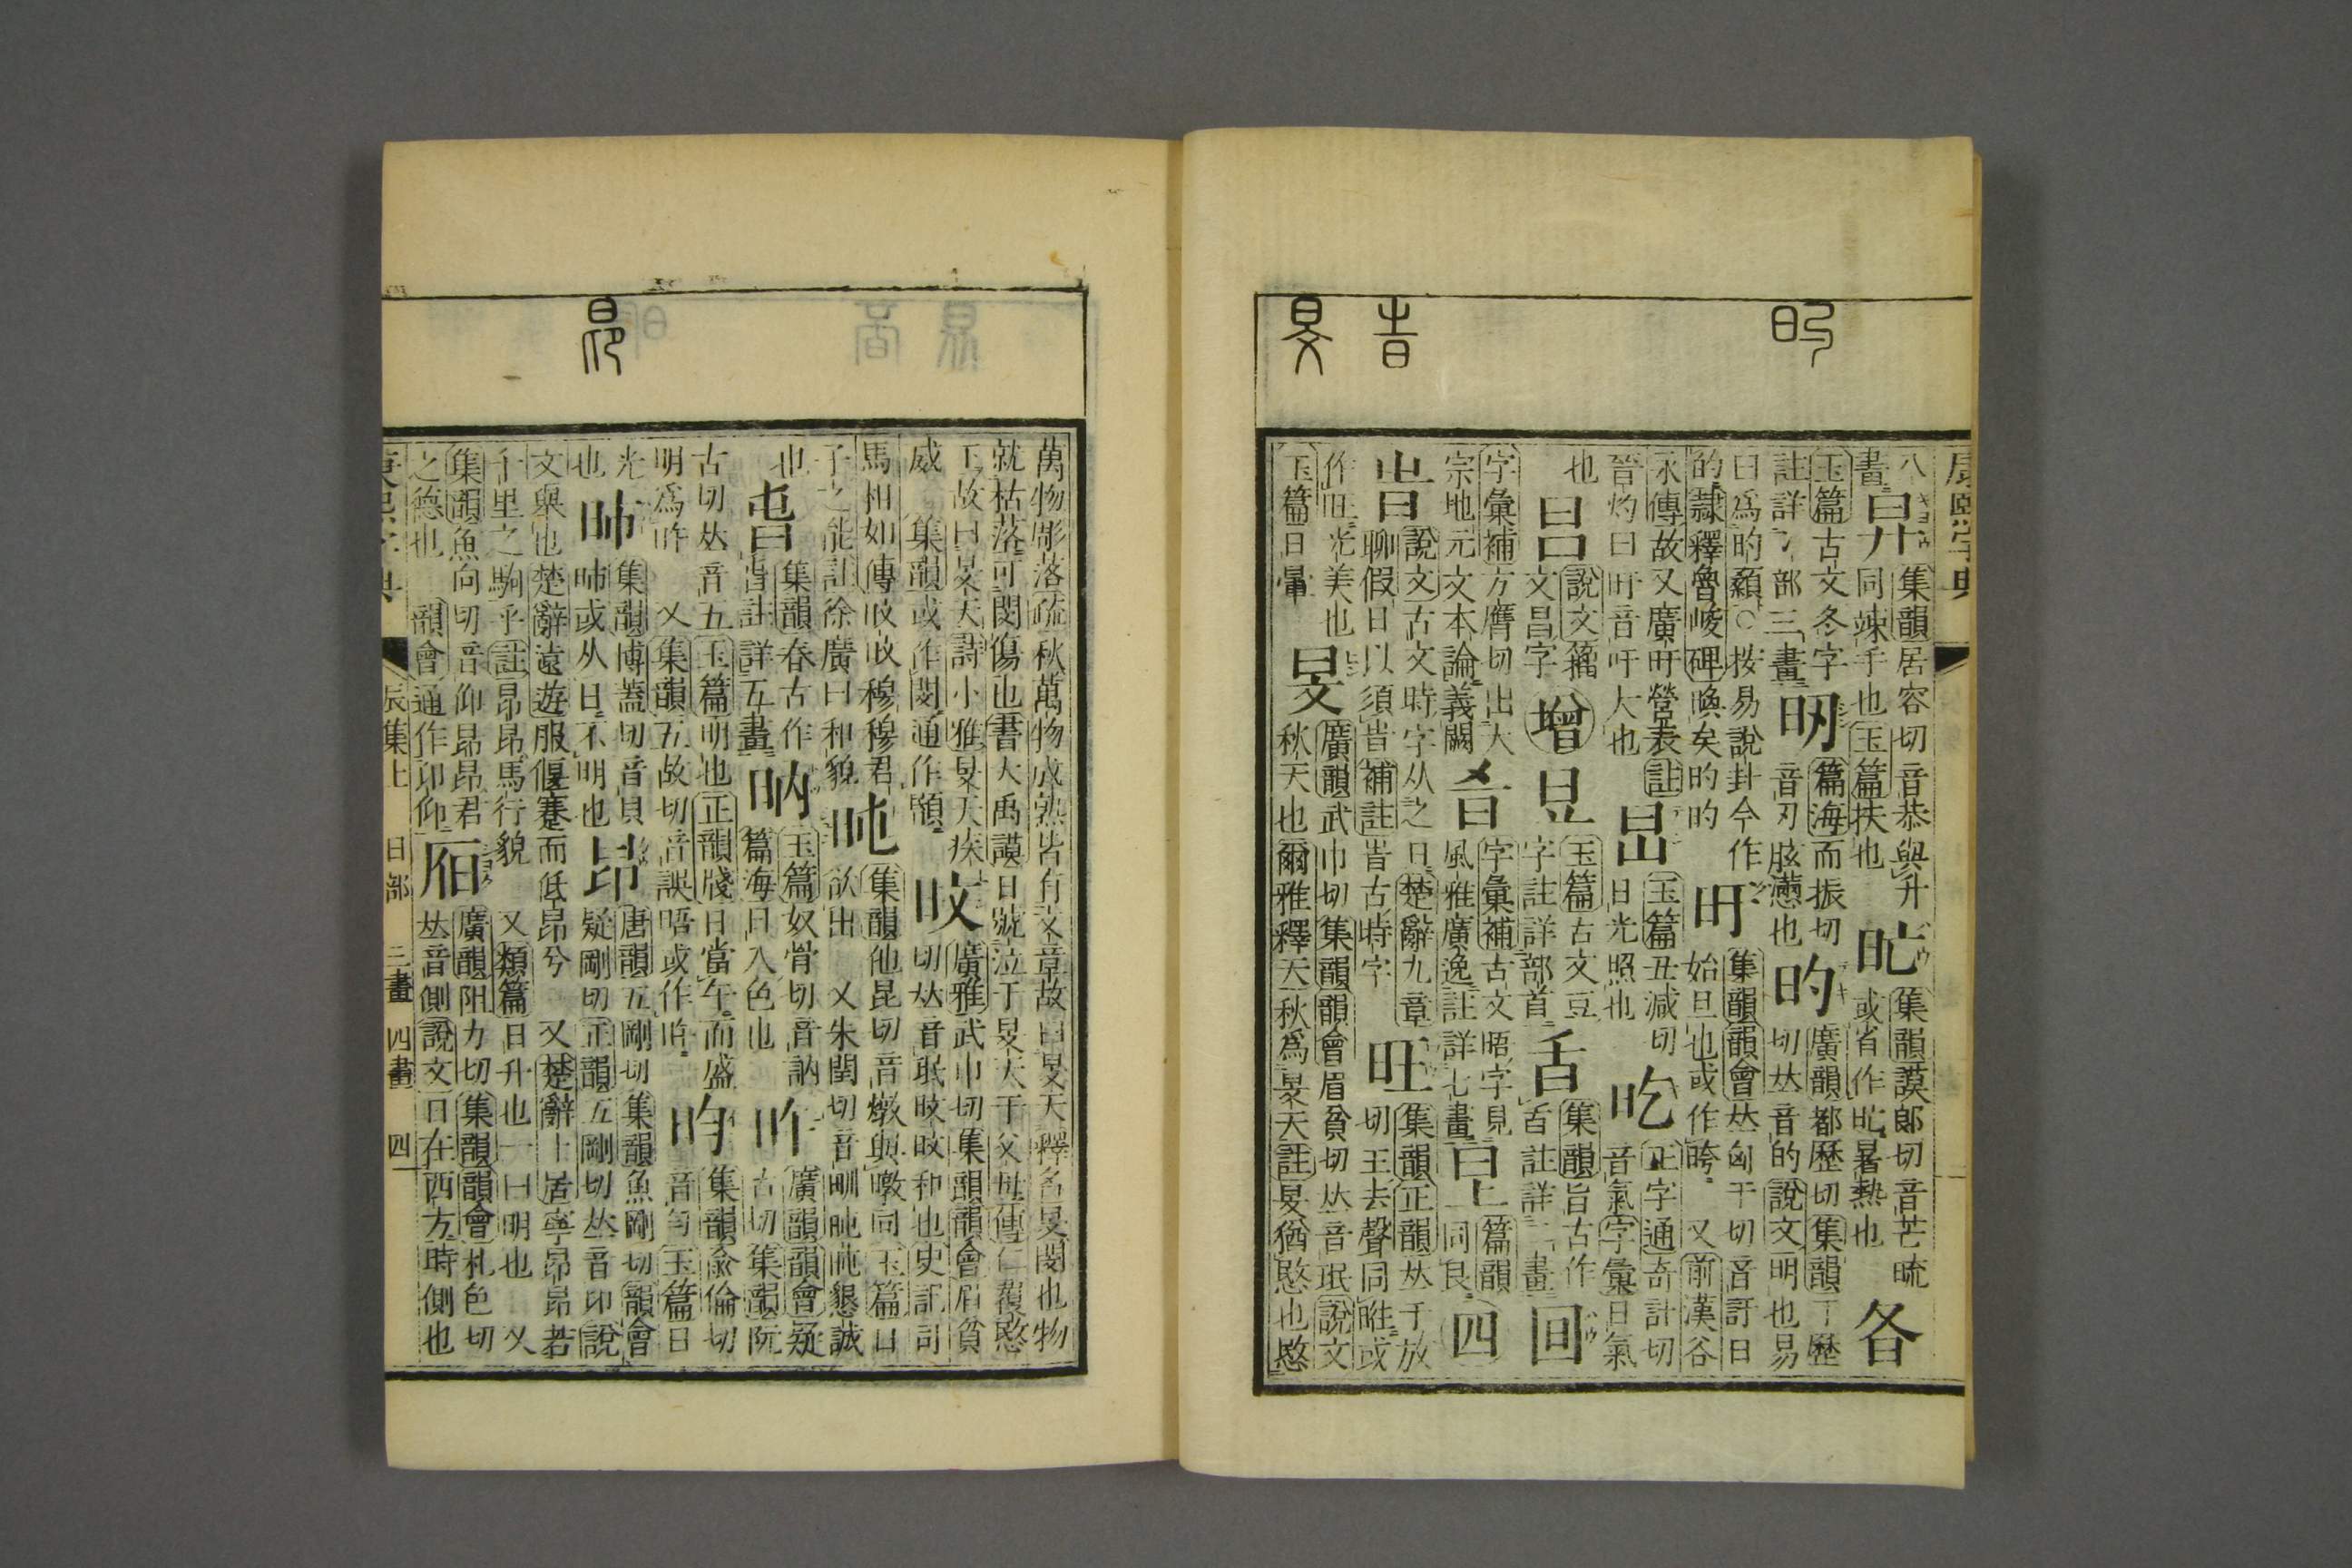 康熙字典
八
畫
昇
集韻居容切音恭與升
同竦手也玉篇扶也
𣅈
集韻謨郎切音芒㬻
或省作𣅈暑熱也
昝
玉篇古文冬字
註詳冫部三畫
明
篇海而振切
音刃眩懣也
旳
廣韻都歷切集韻丁歷
切𠀤音的說文明也易
曰爲旳顙○按易說卦今作
的隸釋魯峻碑喚矣旳旳
旴
集韻韻會𠀤匈于切音訏日
始旦也或作晇 又前漢谷
永傳故又廣旴營表註
晉灼曰旴音吁大也
玉篇丑減切
日光照也
正字通奇計切
音氣字彙日氣
也
昌
說文籀
文昌字
增
玉篇古文豆
字註詳部首
舌
集韻旨古作
舌註詳二畫
囬
字彙補方膺切出大
宗地元文本論義闕
字彙補古文昭字見
風雅廣逸註詳七畫
篇韻
同艮
四
旹
說文古文時字从之日楚辭九章
聊假日以須旹補註旹古時字
旺
集韻正韻𠀤于放
切王去聲同暀或
作旺光美也
旻
廣韻武巾切集韻韻會眉貧切𠀤音珉說文
秋天也爾雅釋天秋爲旻天註旻猶愍也愍
玉篇日暈
萬物彫落疏秋萬物成熟皆有文章故曰旻天釋名旻閔也物
就枯落可閔傷也書大禹謨日號泣于旻天于父母傳仁覆愍
下故曰旻天詩小雅旻天疾
威 集韻或作閔通作顋
㫚
廣雅武巾切集韻韻會眉貧
切𠀤音珉旼旼和也史記司
馬相如傳旼旼穆穆君
子之能註徐廣曰和貌
旽
集韻他昆切音燉與暾同玉篇日
欲出 又朱閏切音㖧旽旽懇誠
也
旾
集韻春古作
旾註詳五畫
㕯
玉篇奴骨切音訥
篇海日入色也
昨
廣韻韻會疑
古切集韻阮
古切𠀤音五玉篇明也正韻牋日當午而盛
明爲旿 又集韻五故切音誤晤或作旿
昀
集韻兪倫切
音勻玉篇日
光
也
昁
集韻博蓋切音貝
昁或从日不明也
昂
唐韻五剛切集韻魚剛切韻會
疑剛切正韻五剛切𠀤音卬說
文舉也楚辭遠遊服偃蹇而低昂兮 又楚辭卜居寧昂昂若
千里之駒乎註昂昂馬行貌 又類篇日升也一曰明也 又
集韻魚向切音仰昂昂君
之德也 韻會通作卬仰
𣅔
廣韻阻力切集韻韻會札色切
𠀤音側說文日在西方時側也
辰集上 日部 三畫 四畫 四